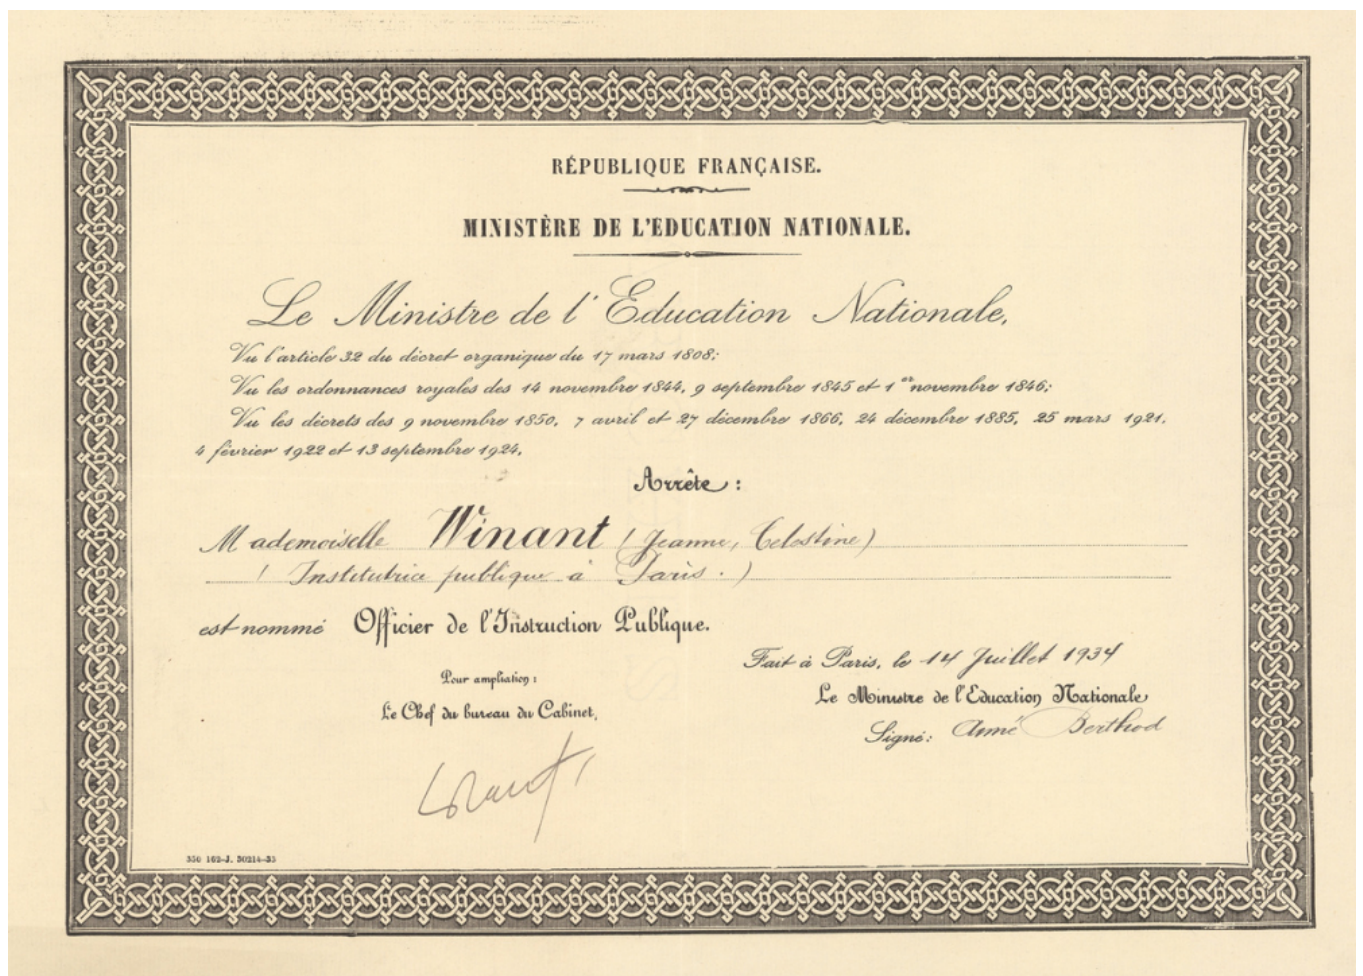 RÉPUBLIQUE FRANÇAISE.
MINISTÈRE DE L'EDUCATION NATIONALE.
Le Ministre de l'Education Nationale,
Vu l'article 32 du décret organique du 17 mars 1808;
Vu les ordonnances royales des 14 novembre 1844, 9 septembre 1845 et 1er novembre 1846;
Vu les décrets des 9 novembre 1850, 7 avril et 27 décembre 1866, 24 décembre 1885, 25 mars 1921,
4 février 1922 et 13 septembre 1924,
Arrête :
Mademoiselle Winant (Jeanne, Celestine)
(Institutrice publique à Paris.)
est nommé Officier de l'Instruction Publique.
Fait à Paris, le 14 Juillet 1934
Pour ampliation :
Le Chef du bureau du Cabinet,
Le Ministre de l'Education Nationale
Signé: Aimé Berthod
350 162-J. 30214-33